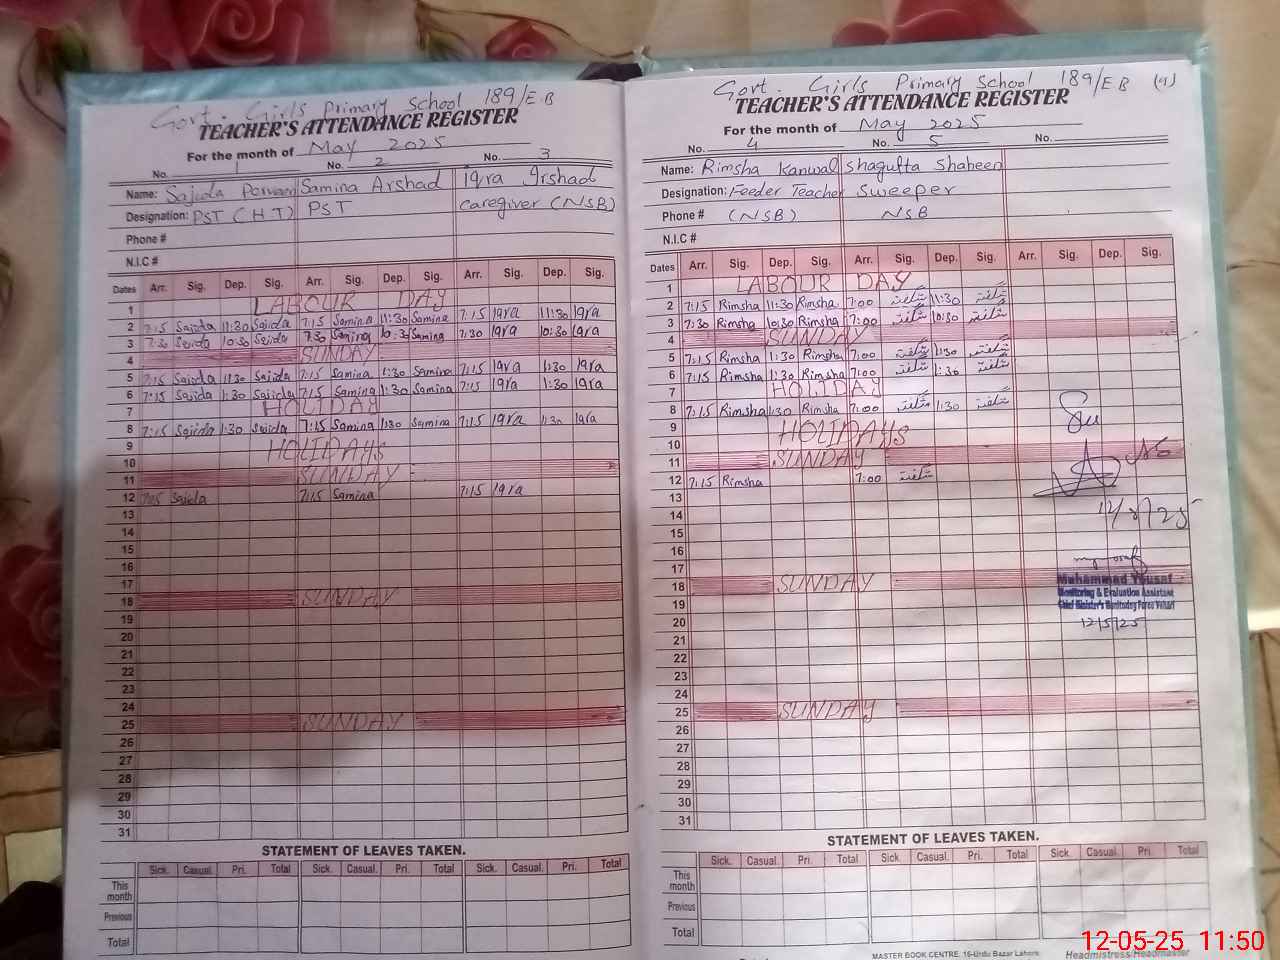 Govt. Girls Primary School 189/E.B
TEACHER'S ATTENDANCE REGISTER
For the month of May 2025
No. 1 No. 2 No. 3
Name: Sajida Parveen Samina Arshad Iqra Irshad
Designation: PST (H.T) PST Caregiver (NSB)
Phone #
N.I.C #
Dates Arr. Sig. Dep. Sig. Arr. Sig. Dep. Sig. Arr. Sig. Dep. Sig.
1 LABOUR DAY
2 7:15 Sajida 11:30 Sajida 7:15 Samina 11:30 Samina 7:15 Iqra 11:30 Iqra
3 7:30 Sajida 10:30 Sajida 7:30 Samina 10:30 Samina 7:30 Iqra 10:30 Iqra
4 SUNDAY
5 7:15 Sajida 1:30 Sajida 7:15 Samina 1:30 Samina 7:15 Iqra 1:30 Iqra
6 7:15 Sajida 1:30 Sajida 7:15 Samina 1:30 Samina 7:15 Iqra 1:30 Iqra
7 HOLIDAY
8 7:15 Sajida 1:30 Sajida 7:15 Samina 1:30 Samina 7:15 Iqra 1:30 Iqra
9 HOLIDAYS
10
11 SUNDAY
12 7:15 Sajida 7:15 Samina 7:15 Iqra
13
14
15
16
17
18 SUNDAY
19
20
21
22
23
24
25 SUNDAY
26
27
28
29
30
31
STATEMENT OF LEAVES TAKEN.
Sick. Casual. Pri. Total Sick. Casual. Pri. Total Sick. Casual. Pri. Total
This month
Previous
Total
Govt. Girls Primary School 189/E.B (9)
TEACHER'S ATTENDANCE REGISTER
For the month of May 2025
No. 4 No. 5 No.
Name: Rimsha Kanwal Shagufta Shaheen
Designation: Feeder Teacher Sweeper
Phone # (NSB) NSB
N.I.C #
Dates Arr. Sig. Dep. Sig. Arr. Sig. Dep. Sig. Arr. Sig. Dep. Sig.
1 LABOUR DAY
2 7:15 Rimsha 11:30 Rimsha 7:00 شگفتہ 11:30 شگفتہ
3 7:30 Rimsha 10:30 Rimsha 7:00 شگفتہ 10:30 شگفتہ
4 SUNDAY
5 7:15 Rimsha 1:30 Rimsha 7:00 شگفتہ 1:30 شگفتہ
6 7:15 Rimsha 1:30 Rimsha 7:00 شگفتہ 1:30 شگفتہ
7 HOLIDAY
8 7:15 Rimsha 1:30 Rimsha 7:00 شگفتہ 1:30 شگفتہ
9 HOLIDAYS
10
11 SUNDAY
12 7:15 Rimsha 7:00 شگفتہ
13
14
15
16
17
18 SUNDAY
19
20
21
22
23
24
25 SUNDAY
26
27
28
29
30
31
Muhammad Yousaf
Monitoring & Evaluation Assistant
Chief Minister's Monitoring Force Vehari
12/5/25
STATEMENT OF LEAVES TAKEN.
Sick. Casual. Pri. Total Sick. Casual. Pri. Total Sick. Casual. Pri. Total
This month
Previous
Total
MASTER BOOK CENTRE, 16-Urdu Bazar Lahore.
Headmistress/Headmaster
12-05-25 11:50